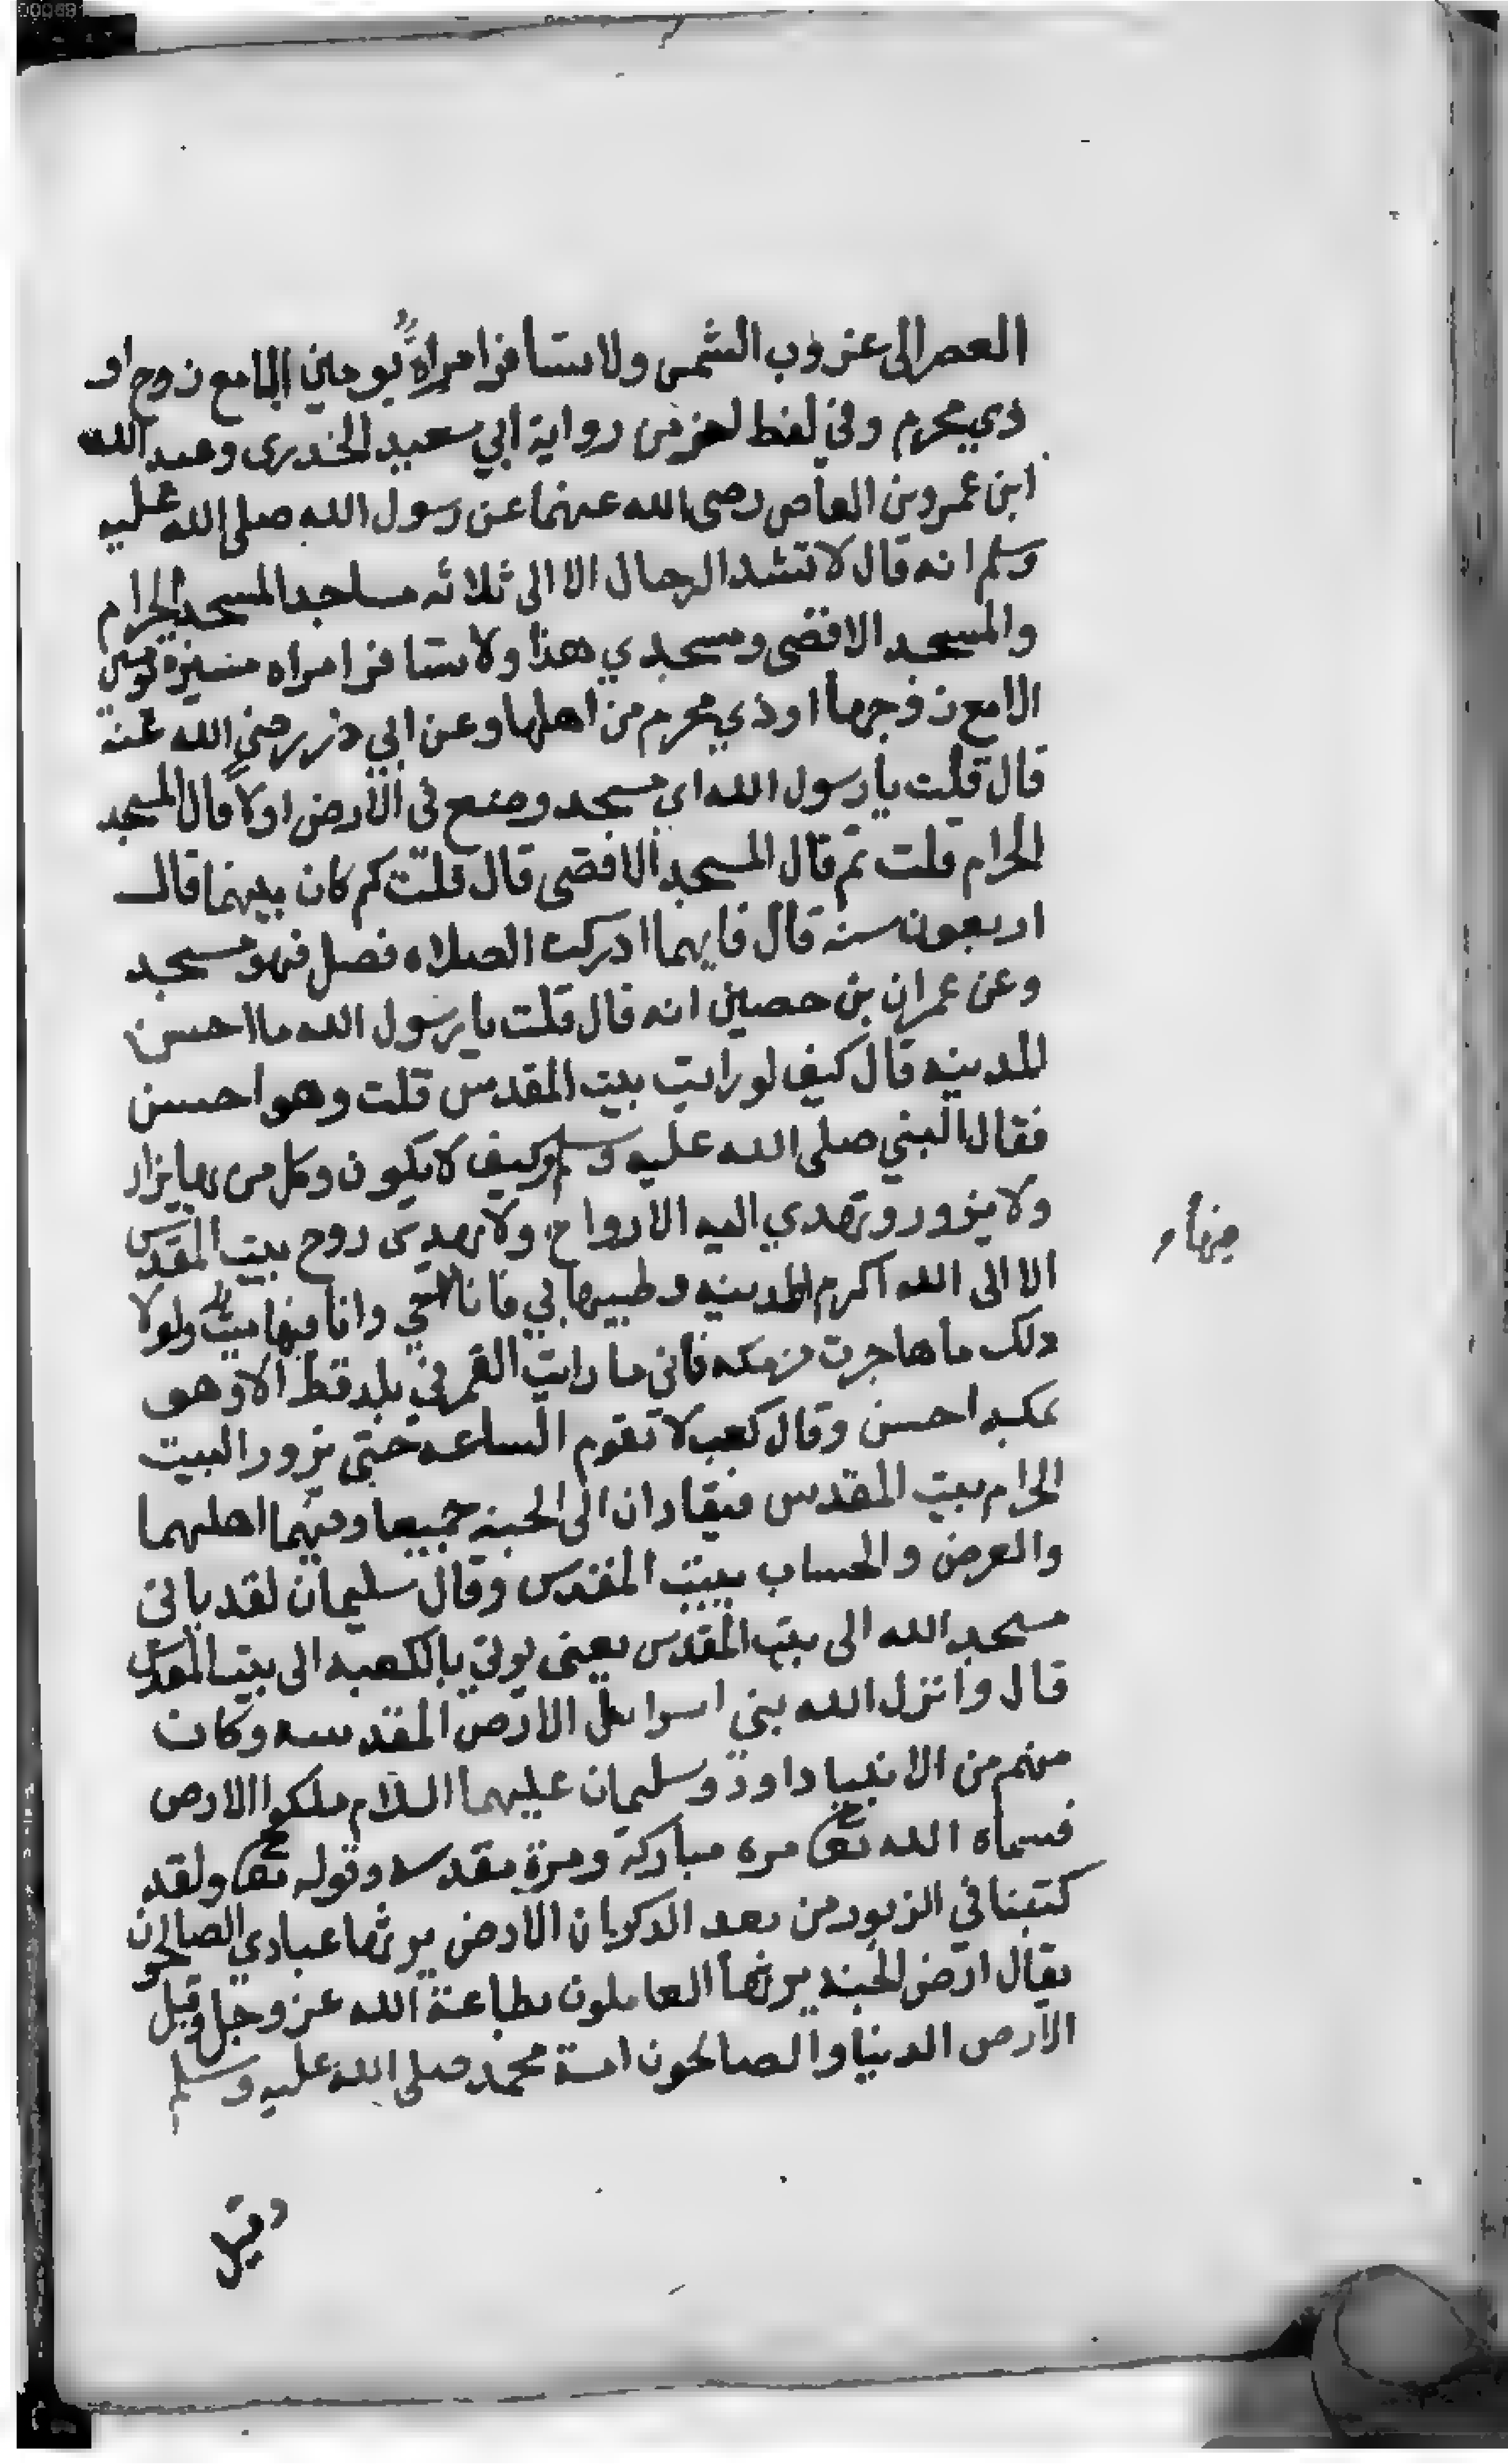 العصر الى غروب الشمس ولا تسافر امراة يومين الا مع زوج او
ذي محرم وفي لفظ اخر من رواية ابي سعيد الخدرى وعبد الله
ابن عمرو بن العاص رضى الله عنهما عن رسول الله صلى الله عليه
وسلم انه قال لا تشد الرحال الا الى ثلاثه مساجد المسجد الحرام
والمسجد الاقصى ومسجدي هذا ولا تسافر امراه مسيرة يومين
الا مع زوجها او ذي محرم من اهلها وعن ابي ذر رضي الله عنه
قال قلت يا رسول الله اي مسجد وضع في الارض اولا قال المسجد
الحرام قلت ثم قال المسجد الاقصى قال قلت كم كان بينهما قال
اربعون سنه قال فايهما ادركت الصلاه فصل فهو مسجد
وعن عمران بن حصين انه قال قلت يا رسول الله ما احسن
المدينه قال كيف لو رايت بيت المقدس قلت وهو احسن
فقال النبي صلى الله عليه وسلم وكيف لا يكون وكل من بها يزار
ولا يزور وتهدي اليه الارواح ولا يهدى روح بيت المقدس
الا الى الله اكرم المدينه وطيبها بي فانا حي وانا فيها ميت ولولا
ذلك ما هاجرت من مكه فاني ما رايت القمر في بلد قط الا وهو
بمكه احسن وقال كعب لا تقوم الساعه حتى يزور البيت
الحرام بيت المقدس فيقادان الى الجنه جميعا وفيهما اهلهما
والعرض والحساب ببيت المقدس وقال سليمان لقد ياتي
مسجد الله الى بيت المقدس يعنى يوتي بالكعبه الى بيت المقدس
قال وانزل الله بني اسرايل الارض المقدسه وكان
منهم من الانبيا داود وسليمان عليهما السلام ملكوا الارض
فسماه الله تعالى مره مباركة ومرة مقدسه وقوله تعالى ولقد
كتبنا في الزبور من بعد الذكر ان الارض يرثها عبادي الصالحون
يقال ارض الجنه يرثها العاملون بطاعة الله عز وجل وقيل
الارض الدنيا والصالحون امة محمد صلى الله عليه وسلم
وقيل